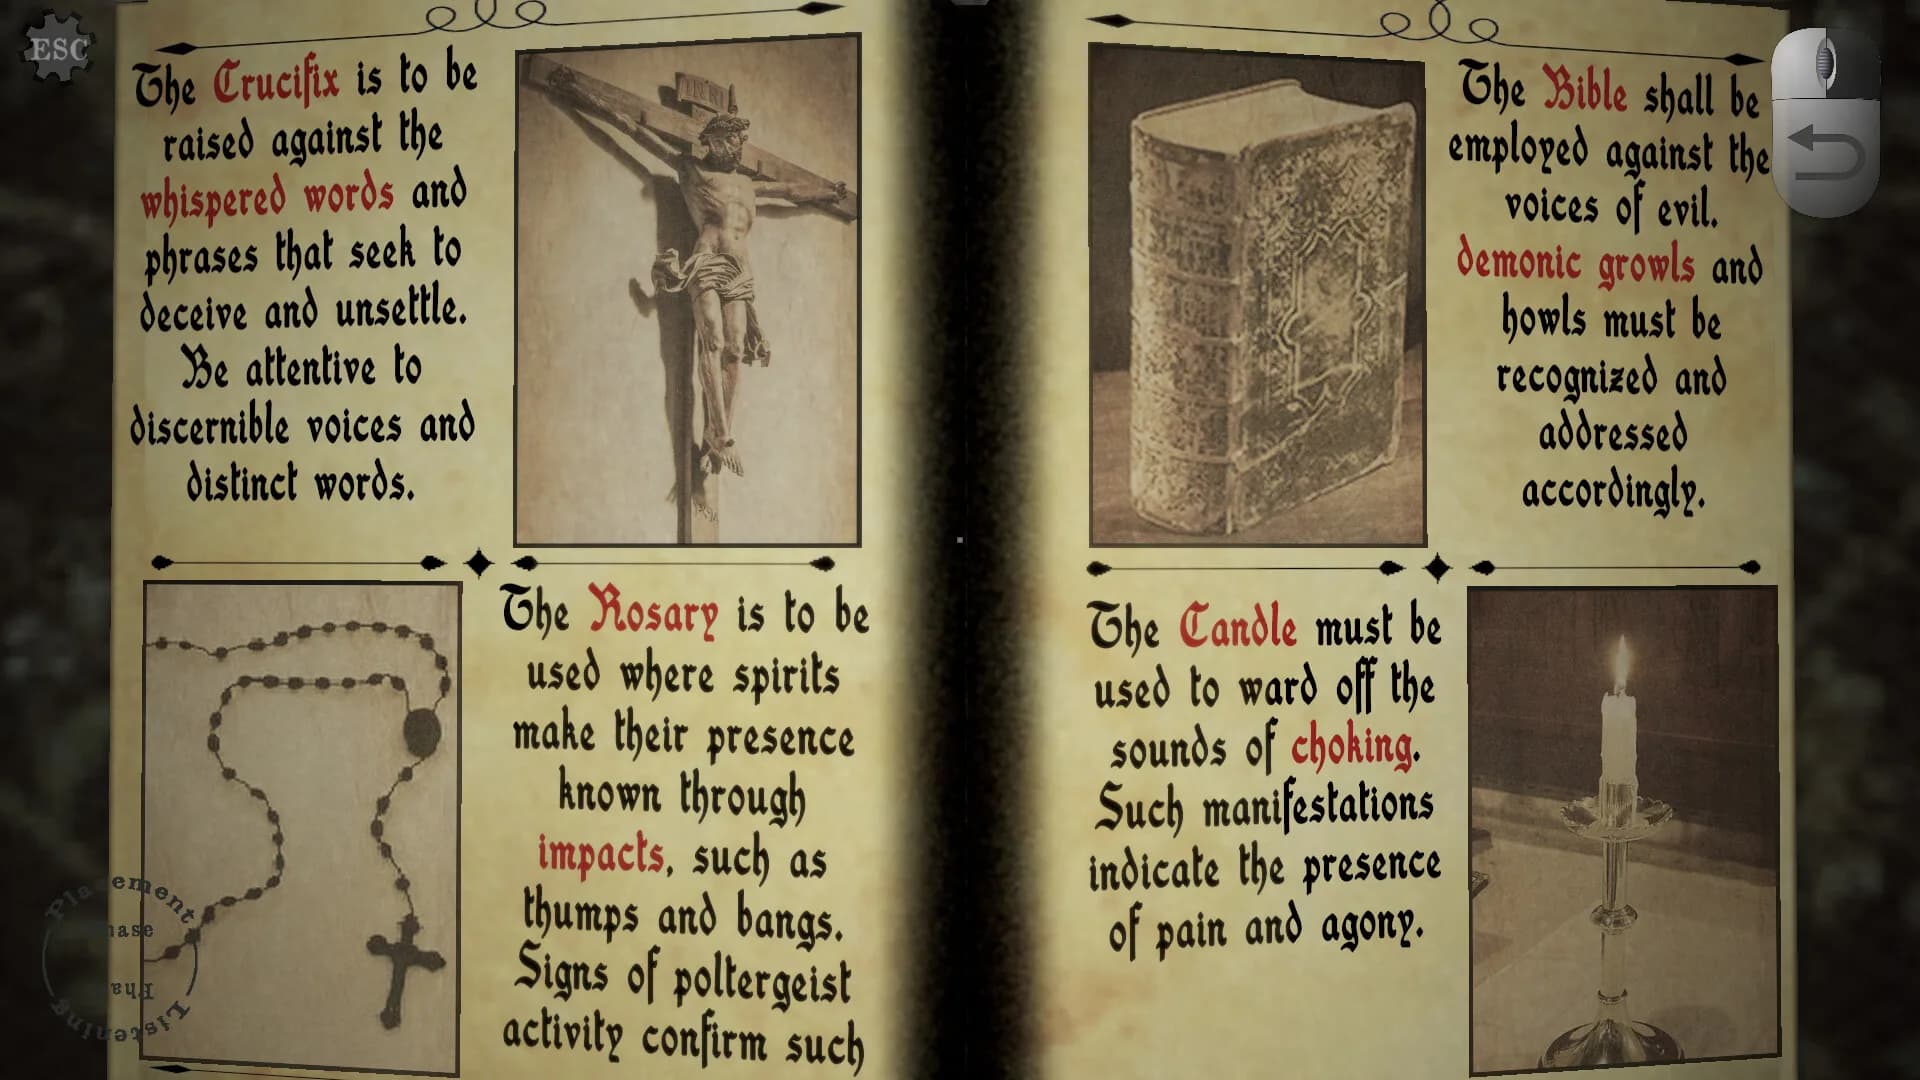 ESC
The Crucifix is to be
raised against the
whispered words and
phrases that seek to
deceive and unsettle.
Be attentive to
discernible voices and
distinct words.
INRI
The Rosary is to be
used where spirits
make their presence
known through
impacts, such as
thumps and bangs.
Signs of poltergeist
activity confirm such
The Bible shall be
employed against the
voices of evil.
demonic growls and
howls must be
recognized and
addressed
accordingly.
The Candle must be
used to ward off the
sounds of choking.
Such manifestations
indicate the presence
of pain and agony.
Placement
Phase
Listening
Phase